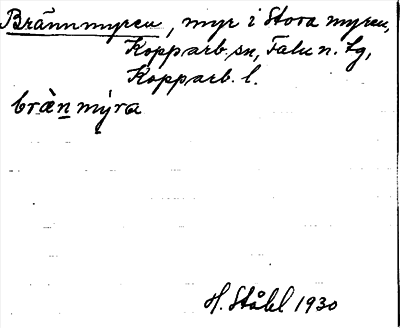 Brännmyren, myr i Stora myren,
Kopparb. sn, Falu n. tg,
Kopparb. l.
brä̀n mýra
H. Ståhl 1930